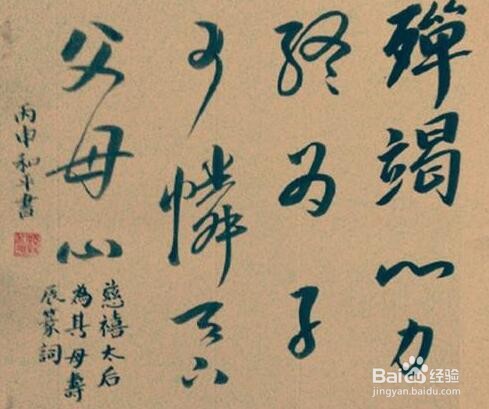 殫竭心力
終为子
可憐天下
父母心
慈禧太后
為其母壽
辰篆詞
丙申和平書
Baidu经验
jingyan.baidu.com